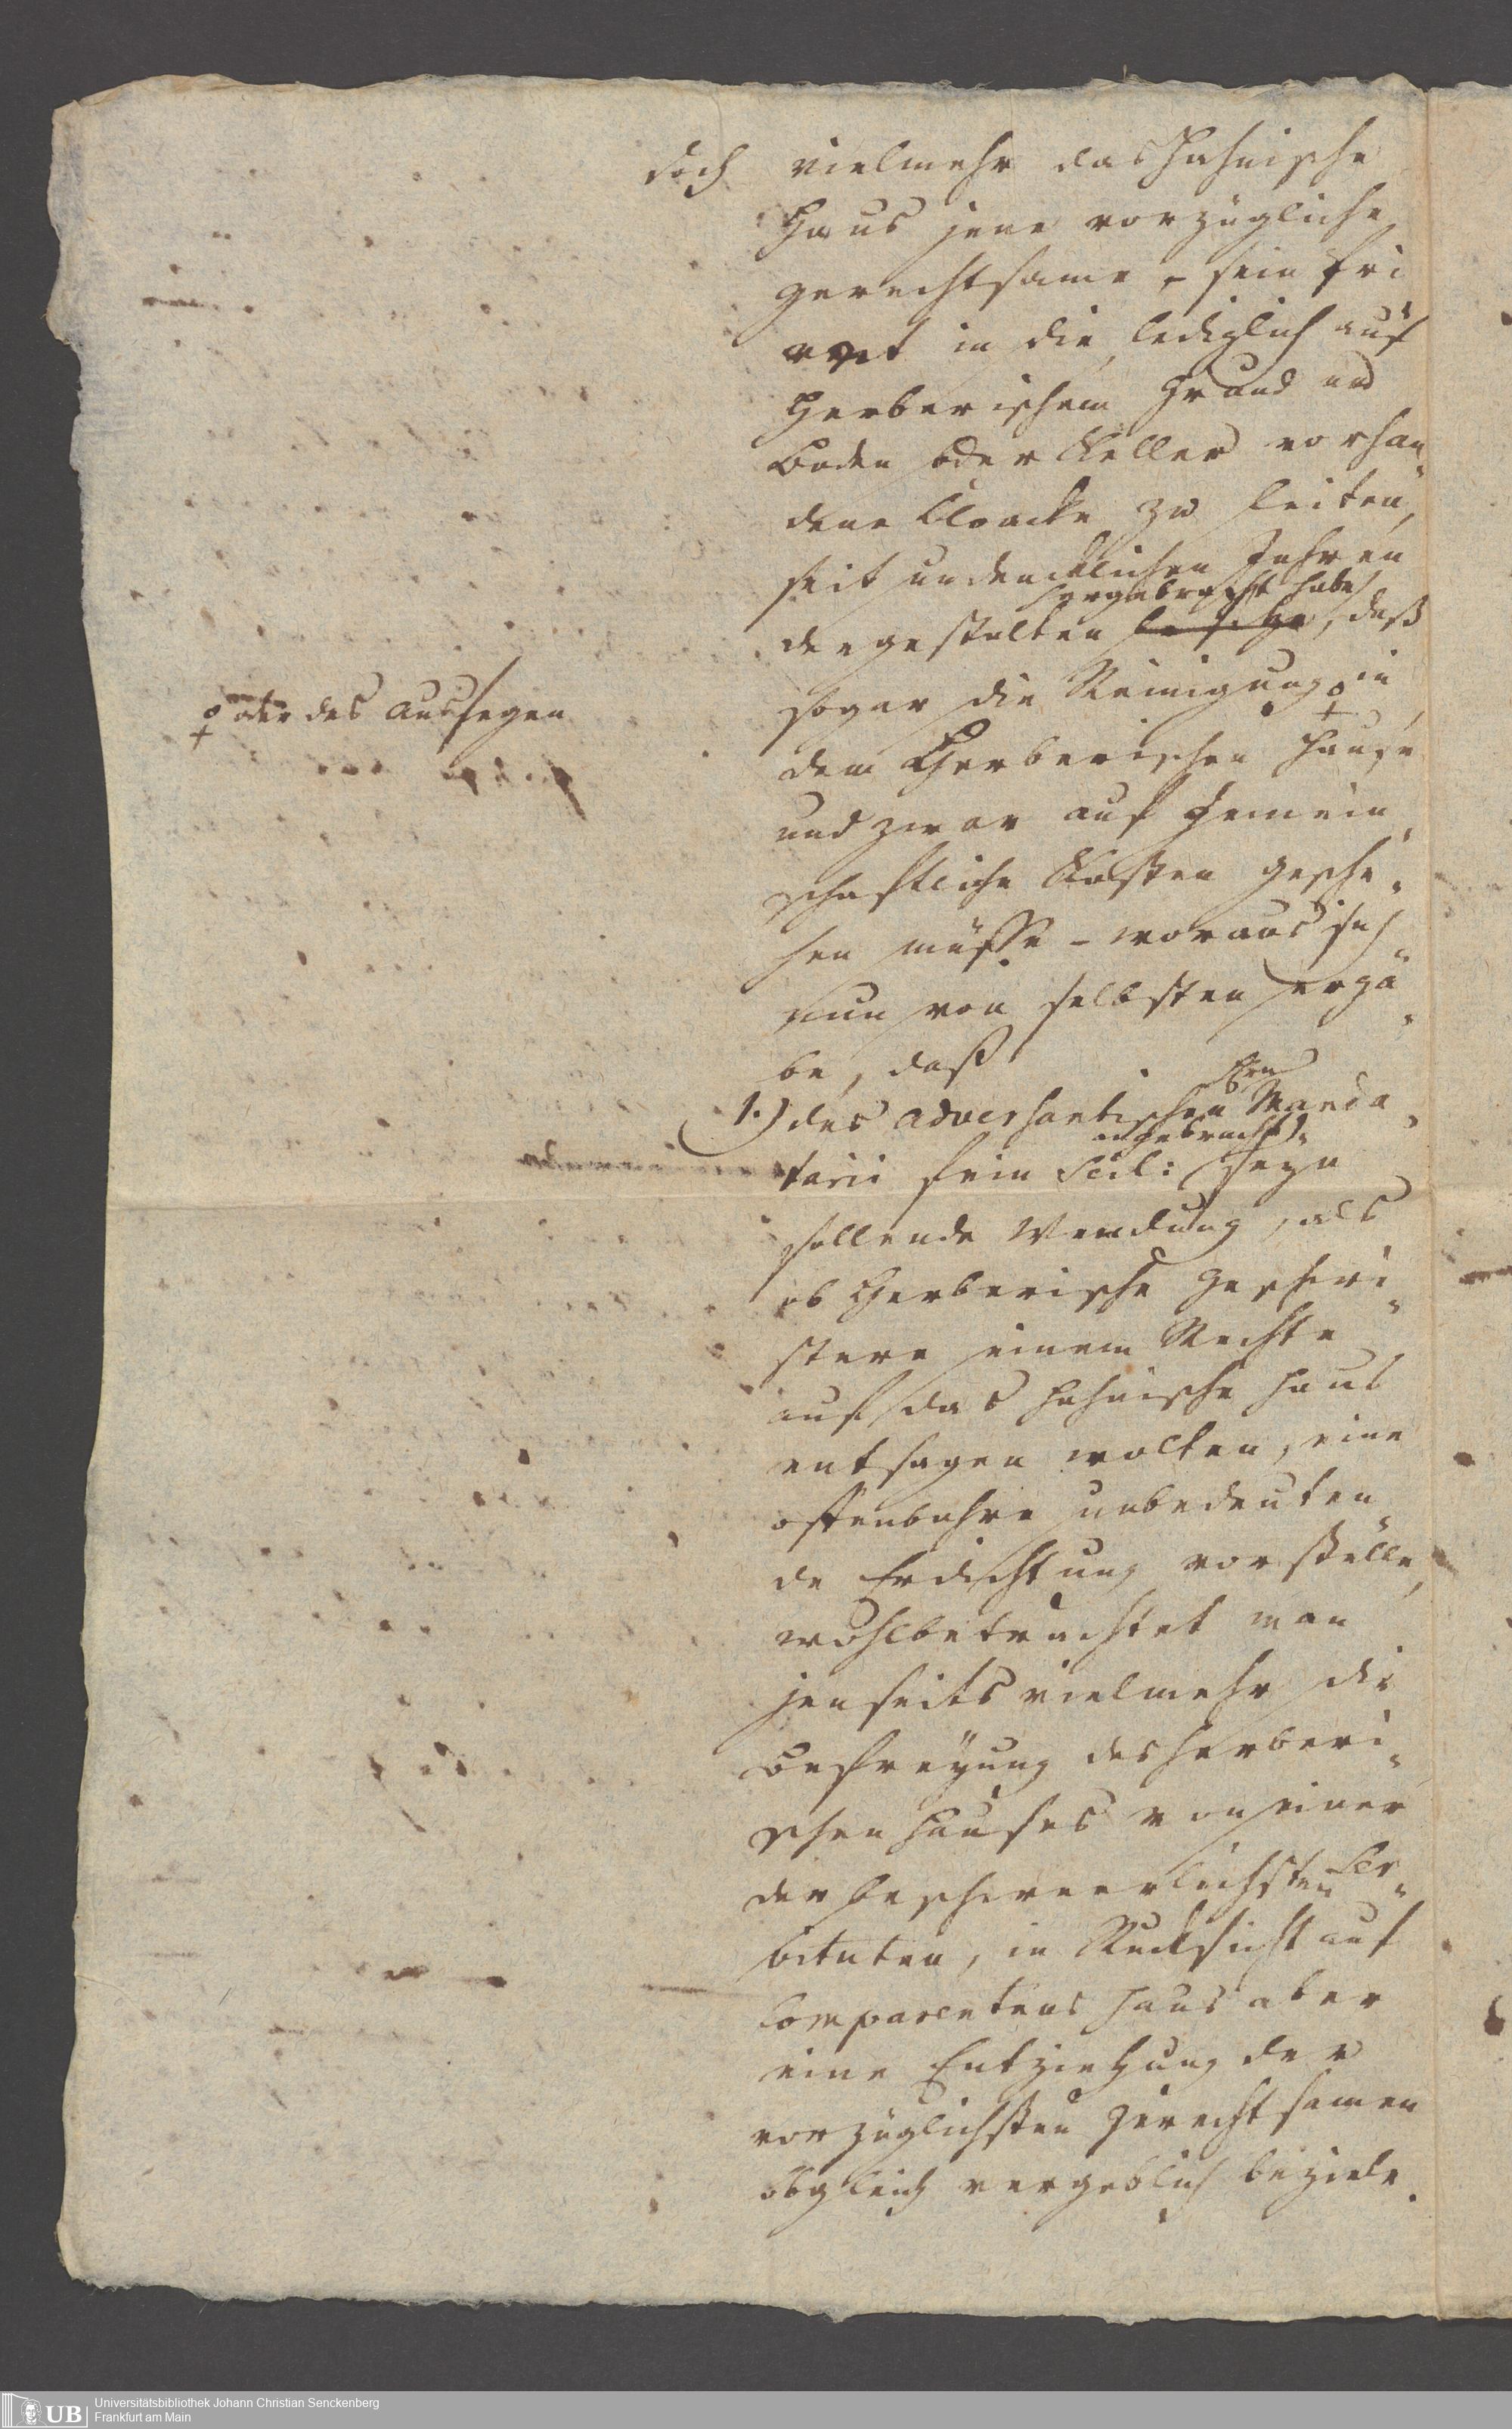 doch vielmehr das Hahnische
Haus jene vorzügliche
gerechtsame, sein Pri
vet in die lediglich auf
Gerberischem Grund und
Boden oder Keller vorhan„
dene Cloacke zu leiten,
seit undencklichen Jahren
hergebracht habe,
dergestalten besitze, daß
sogar die Reinigung in
oder das Ausfegen
dem Gerberischen Hause
und zwar auf Gemein„
schaftliche Kosten gesche„
hen müsse - woraus sich
nun von selbsten ergä„
be, daß
1.) des adversantischen Hrn Manda„
angebracht
tarii fein Scil: seyn
sollende Wendung, als
ob Gerberische Geschwi„
stere einem Rechte
auf das Hahnische Haus
entsagen wolten, eine
offenbahre unbedeuten„
de Erdichtung vorstelle,
wohlbetrachtet man
jenseits vielmehr die
Befreyung des Gerberi„
schen Hauses von einer
der beschwerlichsten Ser„
vituten, in Rücksicht auf
Comparentens Haus aber
eine Entziehung der
vorzüglichsten Gerechtsamen
obgleich vergeblich beziele.
UB
Universitätsbibliothek Johann Christian Senckenberg
Frankfurt am Main